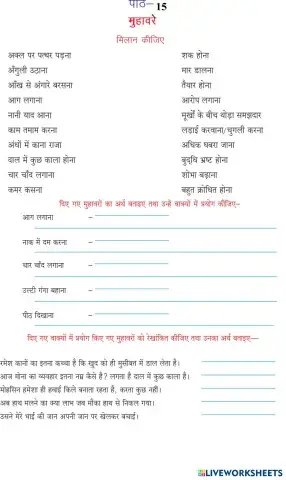 पाठ– 15
मुहावरे
मिलान कीजिए
अक्ल पर पत्थर पड़ना शक होना
अँगुली उठाना मार डालना
आँख से अंगारे बरसना तैयार होना
आग लगाना आरोप लगाना
नानी याद आना मूर्खों के बीच थोड़ा समझदार
काम तमाम करना लड़ाई करवाना/चुगली करना
अंधों में काना राजा अधिक घबरा जाना
दाल में कुछ काला होना बुद्धि भ्रष्ट होना
चार चाँद लगाना शोभा बढ़ाना
कमर कसना बहुत क्रोधित होना
दिए गए मुहावरों का अर्थ बताइए तथा उन्हें वाक्यों में प्रयोग कीजिए–
आग लगाना –
नाक में दम करना –
चार चाँद लगाना –
उल्टी गंगा बहाना –
पीठ दिखाना –
दिए गए वाक्यों में प्रयोग किए गए मुहावरों को रेखांकित कीजिए तथा उनका अर्थ बताइए—
रमेश कानों का इतना कच्चा है कि खुद को ही मुसीबत में डाल लेता है।
आज मोना का व्यवहार इतना नम्र कैसे है? लगता है दाल में कुछ काला है।
मोहसिन हमेशा ही हवाई किले बनाता रहता है, करता कुछ नहीं।
अब हाथ मलने का क्या लाभ जब मौका हाथ से निकल गया।
उसने मेरे भाई की जान अपनी जान पर खेलकर बचाई।
LIVEWORKSHEETS